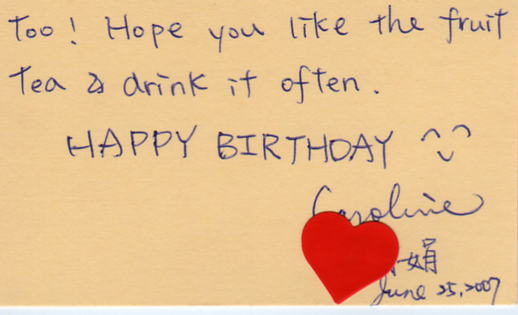 Too! Hope you like the fruit
Tea & drink it often.
HAPPY BIRTHDAY
Caroline
娟
June 25, 2007